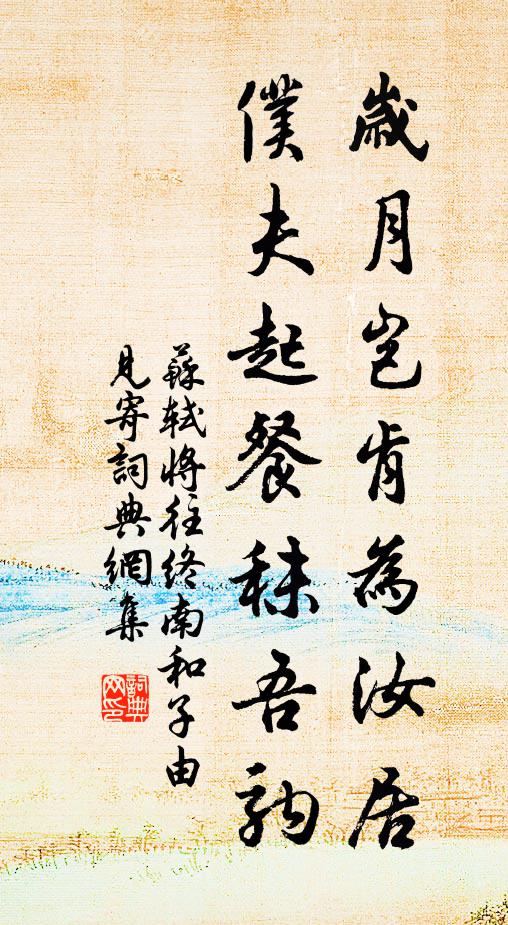 歲月豈肯為汝居
僕夫起餐秣吾駒
蘇軾將往終南和子由
見寄詞典網集
詞典網印